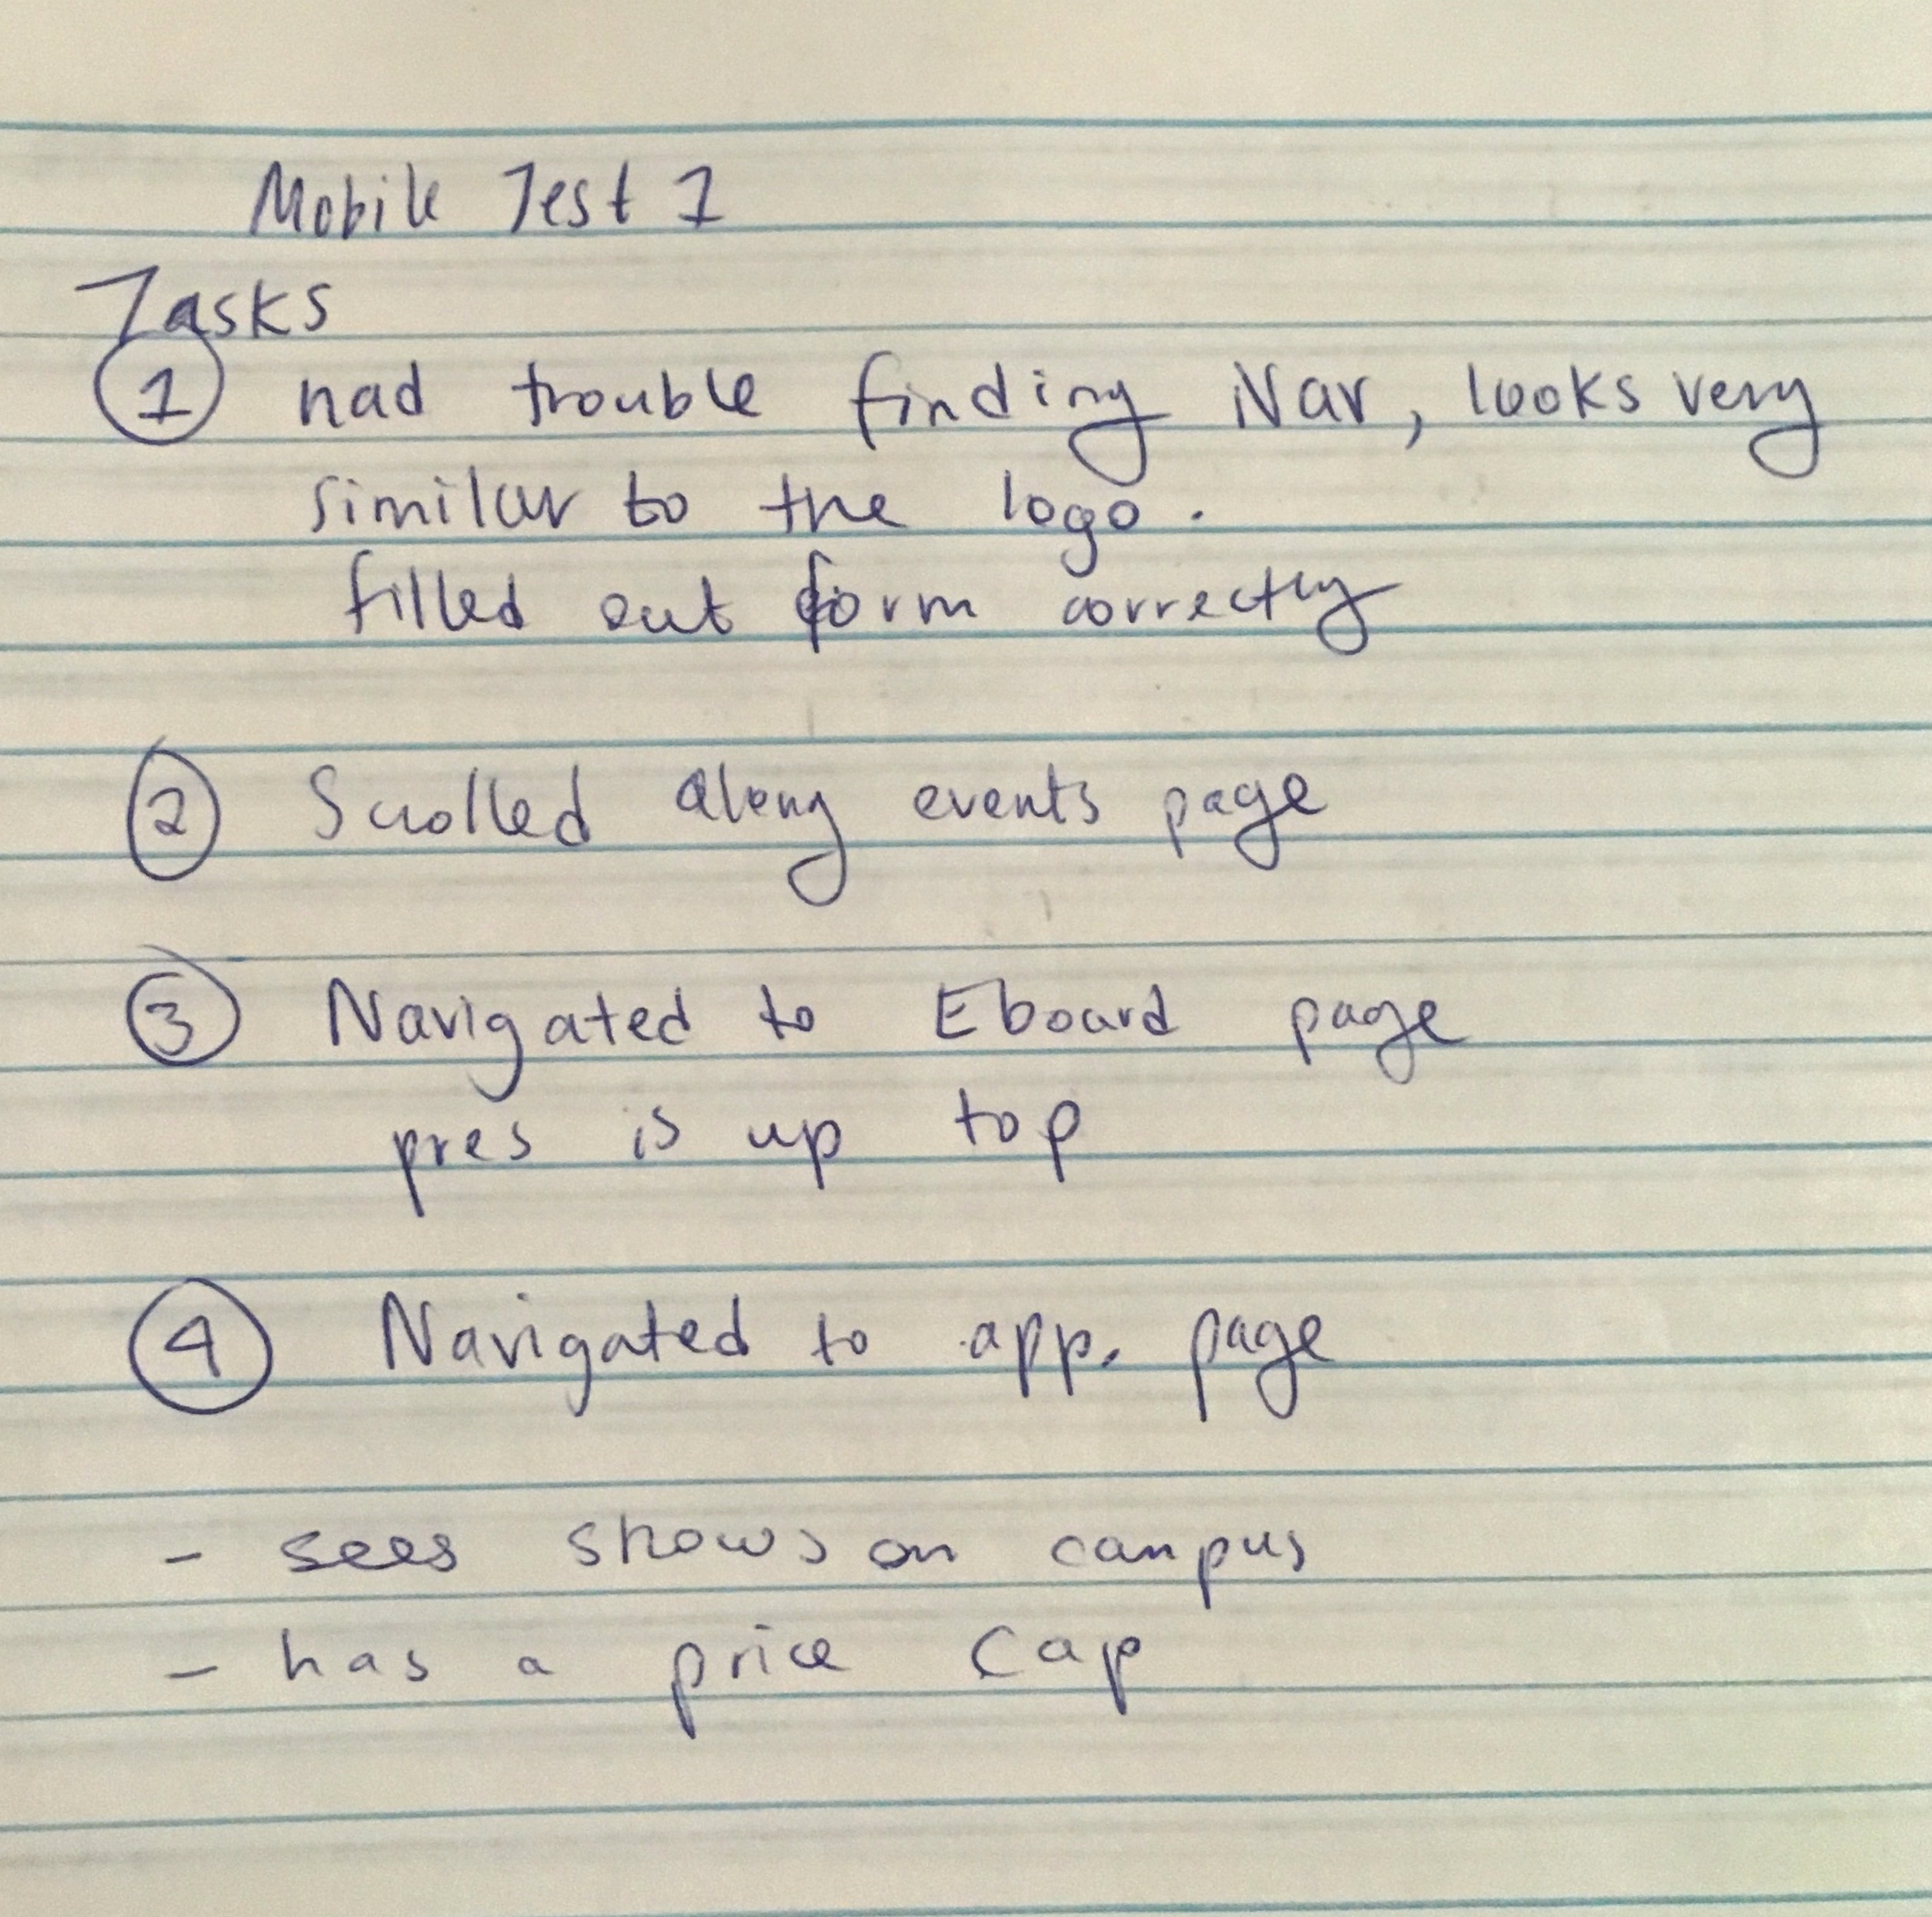 Mobile Test 1
Tasks
1 had trouble finding Nav, looks very
similar to the logo.
filled out form correctly
2 Scrolled along events page
3 Navigated to Eboard page
pres is up top
4 Navigated to app. page
- sees shows on campus
- has a price cap